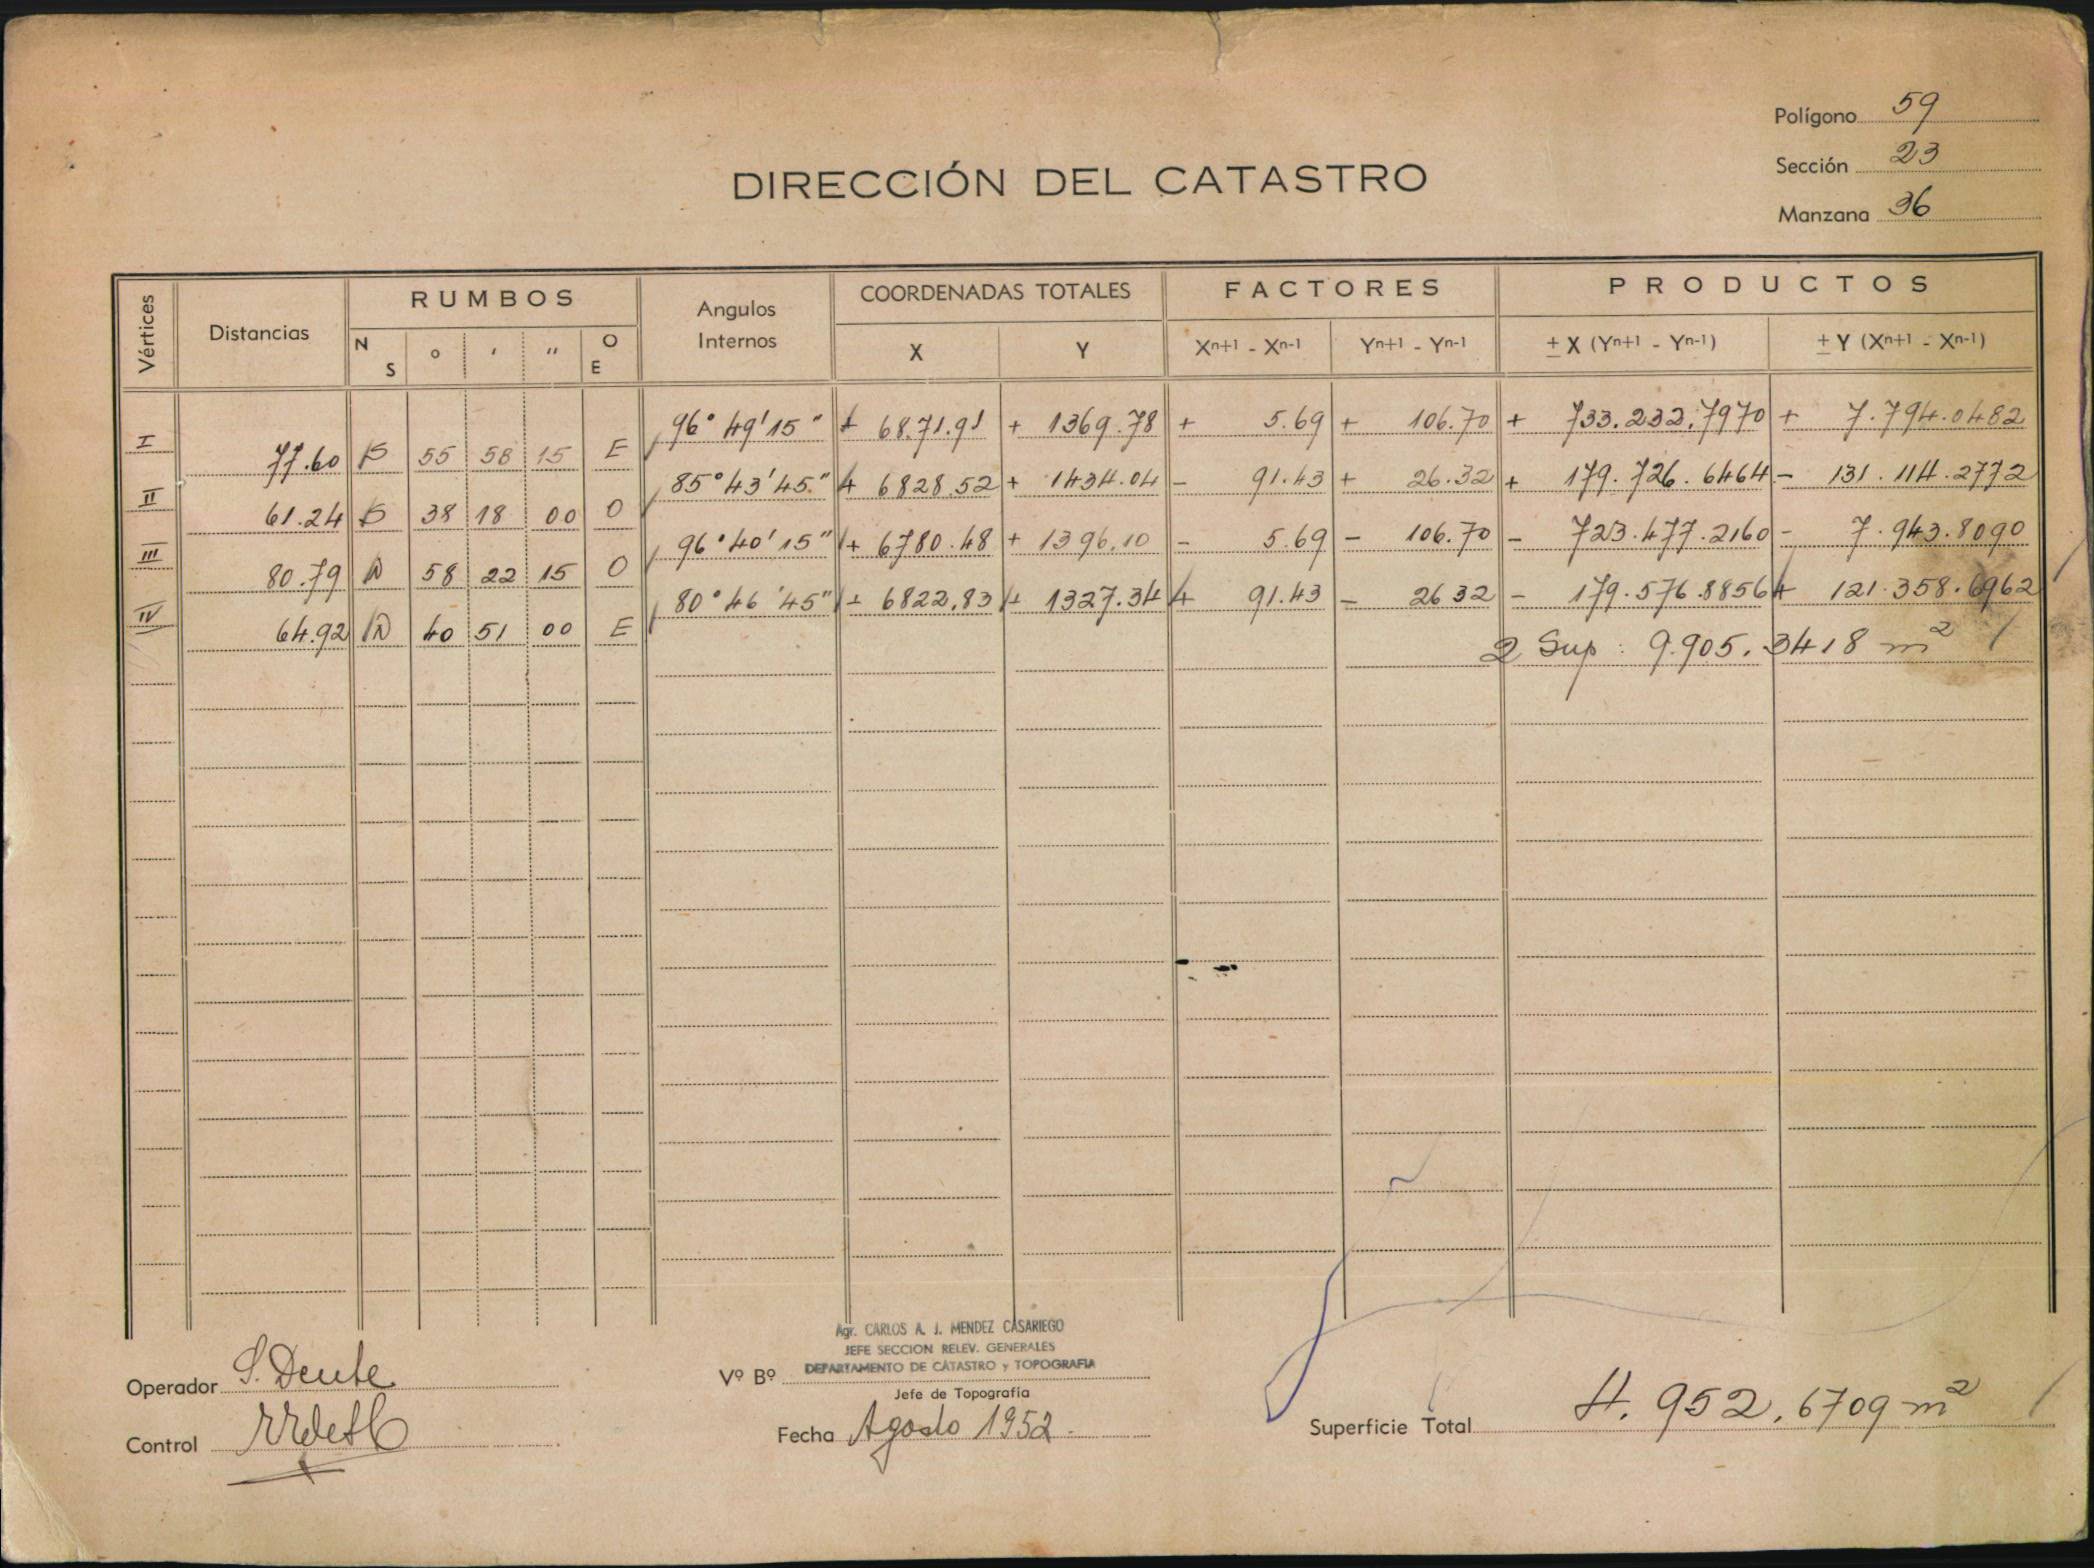 Polígono 59
Sección 23
Manzana 36
DIRECCIÓN DEL CATASTRO
Vértices Distancias RUMBOS Angulos Internos COORDENADAS TOTALES FACTORES PRODUCTOS
N S o ' " O E X Y Xn+1 - Xn-1 Yn+1 - Yn-1 ± X (Yn+1 - Yn-1) ± Y (Xn+1 - Xn-1)
I 77.60 S 55 58 15 E 96° 49' 15" + 68.71.91 + 1369.78 + 5.69 + 106.70 + 733.232.7970 + 7.794.0482
II 61.24 S 38 18 00 O 85° 43' 45" + 6828.52 + 1434.04 - 91.43 + 26.32 + 179.726.6464 - 131.114.2772
III 80.79 N 58 22 15 O 96° 40' 15" + 6780.48 + 1396.10 - 5.69 - 106.70 - 723.477.2160 - 7.943.8090
IV 64.92 N 40 51 00 E 80° 46' 45" + 6822.83 + 1327.34 + 91.43 - 26 32 - 179.576.8856 + 121.358.6962
2 Sup: 9.905.3418 m²
Agr. CARLOS A. J. MENDEZ CASARIEGO
JEFE SECCION RELEV. GENERALES
DEPARTAMENTO DE CATASTRO y TOPOGRAFIA
Operador S. Dente
Vº Bº
Jefe de Topografía
Control
Fecha Agosto 1952.
Superficie Total 4.952.6709 m²